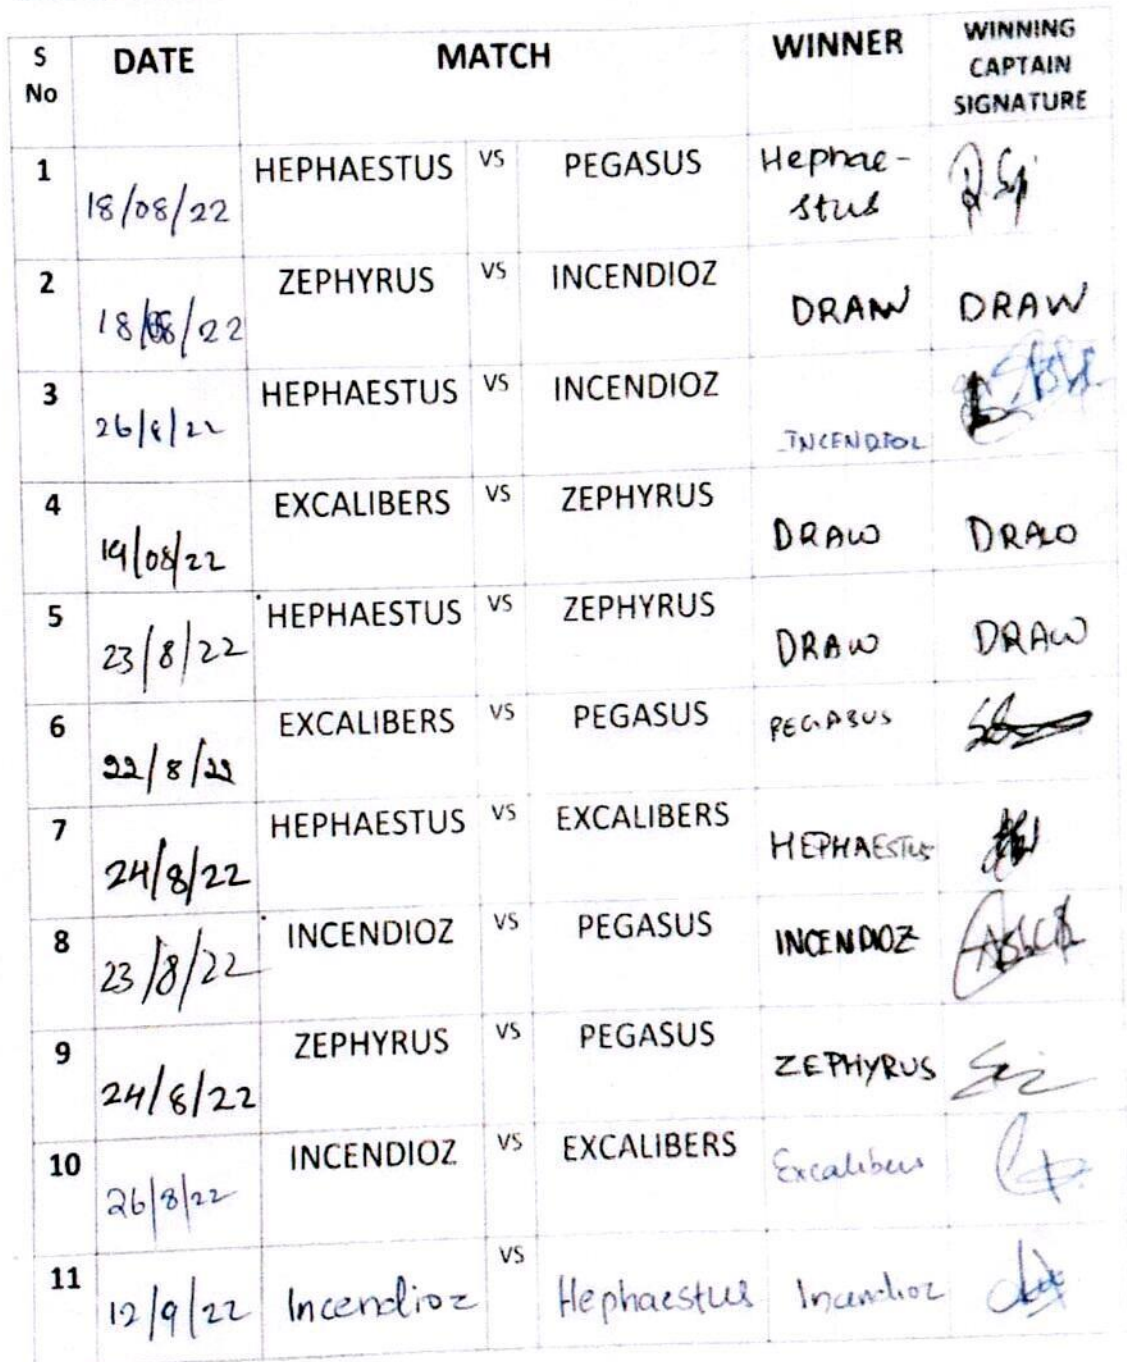 S No DATE MATCH WINNER WINNING CAPTAIN SIGNATURE
1 18/08/22 HEPHAESTUS VS PEGASUS Hephae-stus
2 18/08/22 ZEPHYRUS VS INCENDIOZ DRAW DRAW
3 26/8/22 HEPHAESTUS VS INCENDIOZ INCENDIOZ
4 19/08/22 EXCALIBERS VS ZEPHYRUS DRAW DRAW
5 23/8/22 HEPHAESTUS VS ZEPHYRUS DRAW DRAW
6 22/8/22 EXCALIBERS VS PEGASUS PEGASUS
7 24/8/22 HEPHAESTUS VS EXCALIBERS HEPHAESTUS
8 23/8/22 INCENDIOZ VS PEGASUS INCENDIOZ
9 24/8/22 ZEPHYRUS VS PEGASUS ZEPHYRUS
10 26/8/22 INCENDIOZ VS EXCALIBERS Excalibers
11 12/9/22 Incendioz VS Hephaestus Incendioz